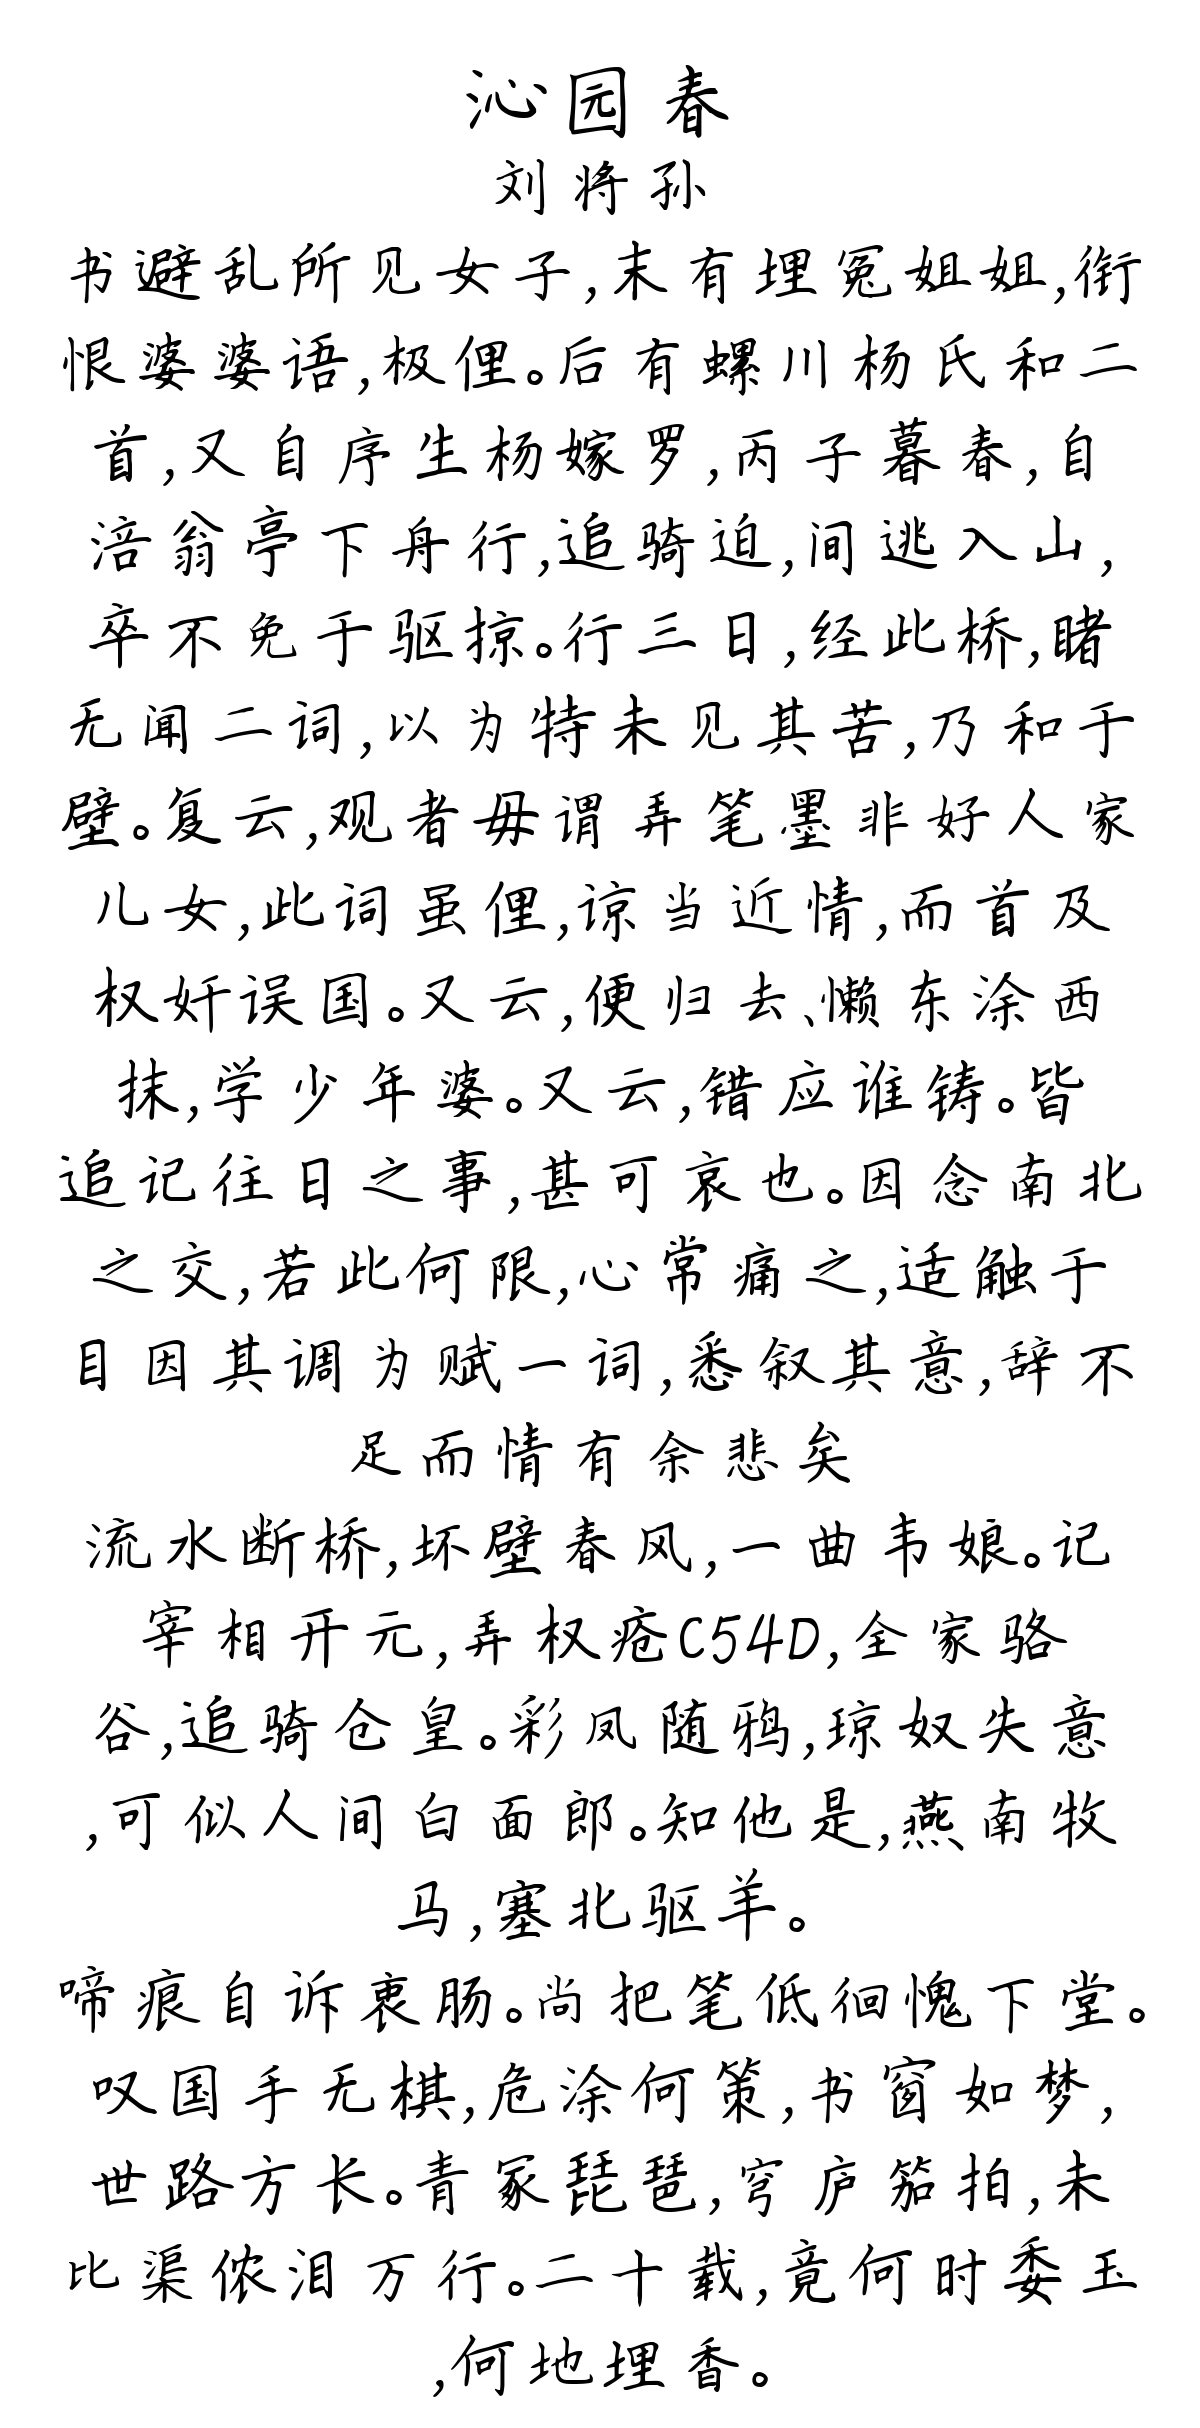 沁园春
刘将孙
书避乱所见女子,末有埋冤姐姐,衔
恨婆婆语,极俚。后有螺川杨氏和二
首,又自序生杨嫁罗,丙子暮春,自
涪翁亭下舟行,追骑迫,间逃入山,
卒不免于驱掠。行三日,经此桥,睹
无闻二词,以为特未见其苦,乃和于
壁。复云,观者毋谓弄笔墨非好人家
儿女,此词虽俚,谅当近情,而首及
权奸误国。又云,便归去、懒东涂西
抹,学少年婆。又云,错应谁铸。皆
追记往日之事,甚可哀也。因念南北
之交,若此何限,心常痛之,适触于
目因其调为赋一词,悉叙其意,辞不
足而情有余悲矣
流水断桥,坏壁春风,一曲韦娘。记
宰相开元,弄权疮C54D,全家骆
谷,追骑仓皇。彩凤随鸦,琼奴失意
,可似人间白面郎。知他是,燕南牧
马,塞北驱羊。
啼痕自诉衷肠。尚把笔低徊愧下堂。
叹国手无棋,危涂何策,书窗如梦,
世路方长。青冢琵琶,穹庐笳拍,未
比渠侬泪万行。二十载,竟何时委玉
,何地埋香。